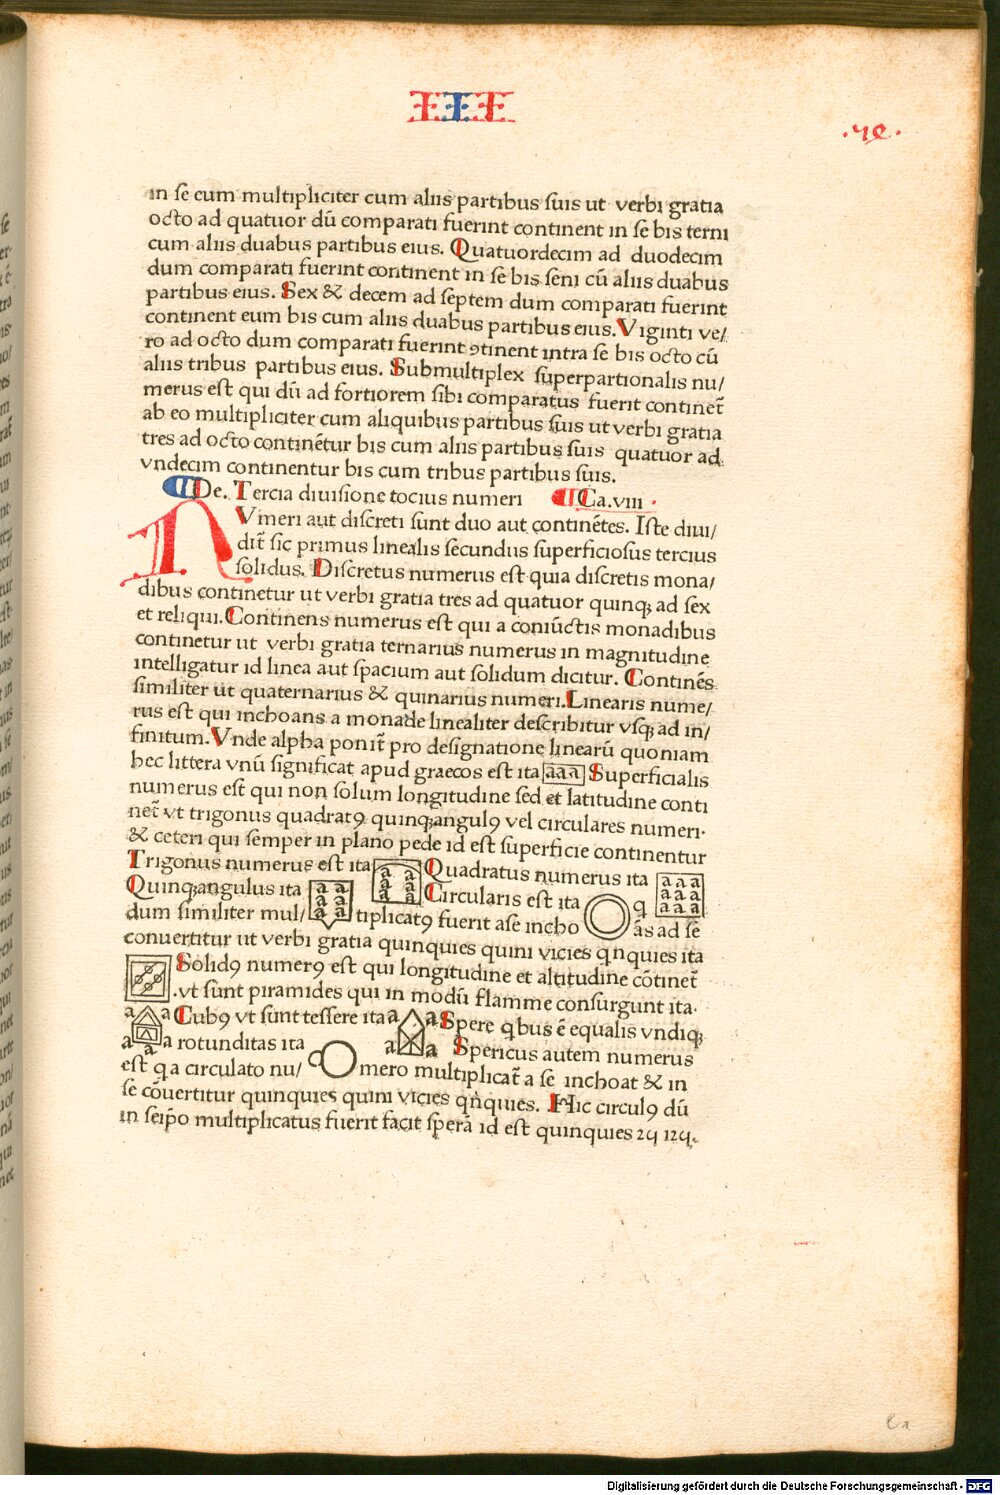 III
in se cum multipliciter cum aliis partibus suis ut verbi gratia
octo ad quatuor dū comparati fuerint continent in se bis terni
cum aliis duabus partibus eius. Quatuordecim ad duodecim
dum comparati fuerint continent in se bis seni cū aliis duabus
partibus eius. Sex & decem ad septem dum comparati fuerint
continent eum bis cum aliis duabus partibus eius. Viginti ve/
ro ad octo dum comparati fuerint ꝯtinent intra se bis octo cū
aliis tribus partibus eius. Submultiplex superpartionalis nu/
merus est qui dū ad fortiorem sibi comparatus fuerit continet̄
ab eo multipliciter cum aliquibus partibus suis ut verbi gratia
tres ad octo continētur bis cum aliis partibus suis quatuor ad
vndecim continentur bis cum tribus partibus suis.
De. Tercia diuisione tocius numeri Ca. viii.
NVmeri aut discreti sunt duo aut continētes. Iste diui/
dit̄ sic primus linealis secundus superficiosus tercius
solidus. Discretus numerus est quia discretis mona/
dibus continetur ut verbi gratia tres ad quatuor quinqꝫ ad sex
et reliqui. Continens numerus est qui a coniūctis monadibus
continetur ut verbi gratia ternarius numerus in magnitudine
intelligatur id linea aut spacium aut solidum dicitur. Continēs
similiter ut quaternarius & quinarius numeri. Linearis nume/
rus est qui inchoans a monade linealiter describitur vsqꝫ ad in/
finitum. Vnde alpha ponit̄ pro designatione linearū quoniam
hec littera vnū significat apud graecos est ita aaa Superficialis
numerus est qui non solum longitudine sed et latitudine conti
net̄ vt trigonus quadratꝯ quinqꝫangulꝯ vel circulares numeri.
& ceteri qui semper in plano pede id est superficie continentur
Trigonus numerus est ita a a a a a a Quadratus numerus ita a a a a a a a a a
Quinqꝫangulus ita a a a a a a Circularis est ita q
dum similiter mul/ tiplicatꝯ fuerit ase incho ās ad se
conuertitur ut verbi gratia quinquies quini vicies qnquies ita
Solidꝯ numerꝯ est qui longitudine et altitudine cōtinet̄
.vt sunt piramides qui in modū flamme consurgunt ita.
a a Cubꝯ vt sunt tessere ita a a Spere qbus ē equalis vndiqꝫ
a a a rotunditas ita a a Spericus autem numerus
est q a circulato nu/ mero multiplicat̄ a se inchoat & in
se cōuertitur quinquies quini vicies qnquies. Hic circulꝯ dū
in seip̄o multiplicatus fuerit facit sperā id est quinquies 25 125.
Digitalisierung gefördert durch die Deutsche Forschungsgemeinschaft - DFG